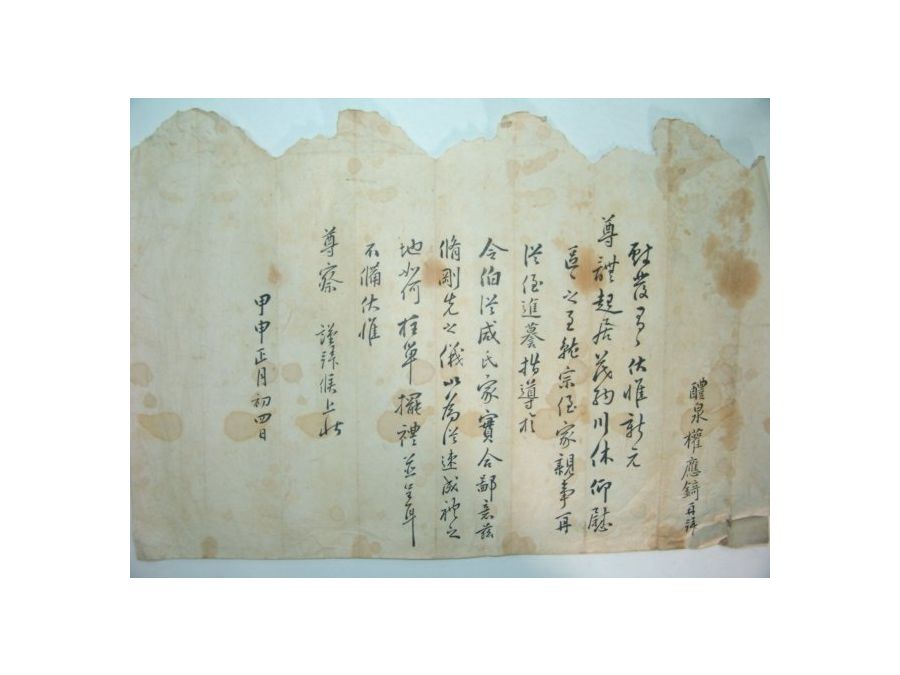 醴泉權應錡再拜
伏惟新元
尊體起居茂納川休仰慰
區之至龍宗侄家親事再
從侄進蓦指導於
令伯從咸氏家實合鄙意茲
脩剛先之儀以爲從速成禮之
地如何柱單擺禮並呈耳
不備伏惟
尊察 謹拜候上狀
甲申正月初四日